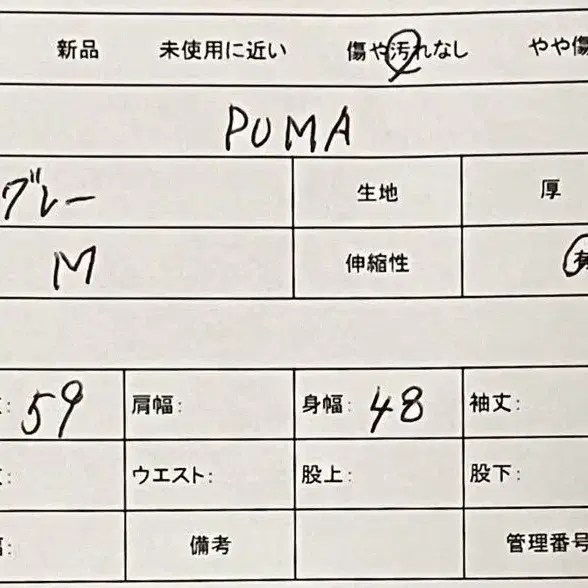 新品 未使用に近い 傷や汚れなし やや傷
PUMA
グレー 生地 厚
M 伸縮性 有
59 肩幅: 身幅: 48 袖丈:
ウエスト: 股上: 股下:
備考 管理番号